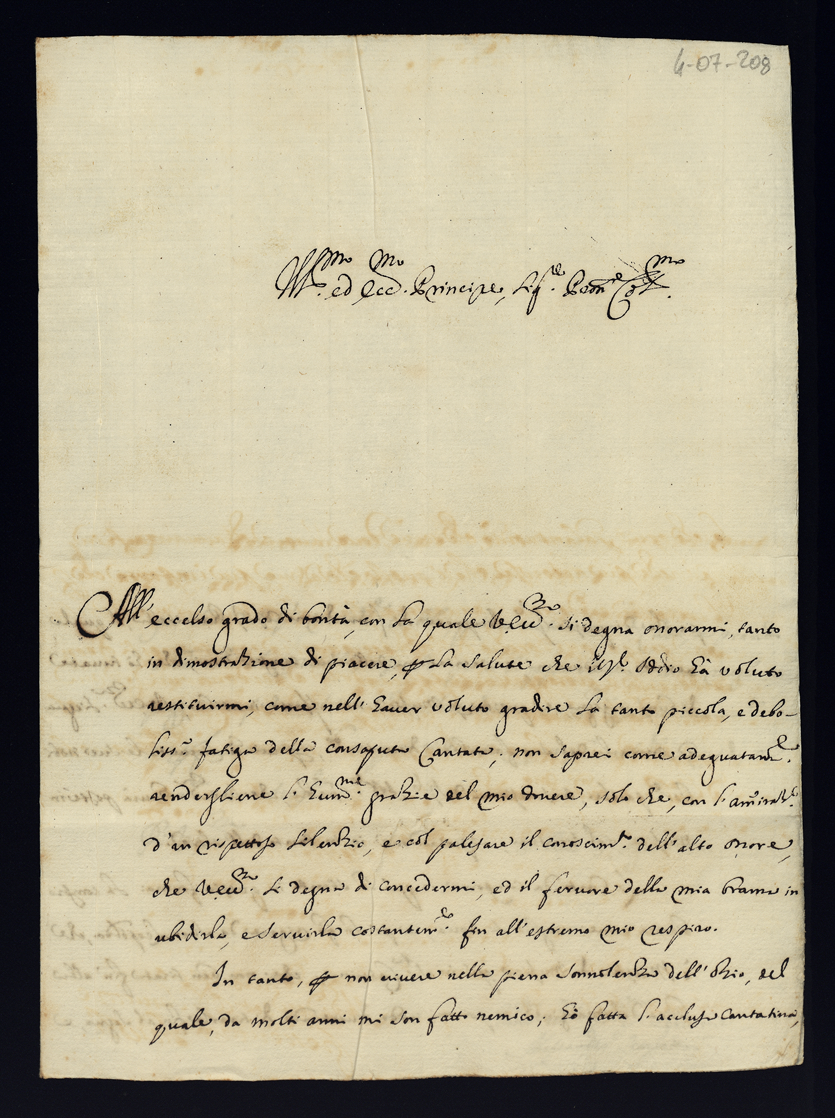 4-07-208
Ill.mo ed Ecc.mo Principe, Sig.re Padr.ne Col.mo
All'eccelso grado di bontà, con la quale V. Ecc.za si degna onorarmi, tanto
in dimostrazione di piacere, per la salute che il Sig.r Iddio hà voluto
restituirmi, come nell'haver voluto gradire la tanto piccola, e debo-
liss.ma fatiga della consaputa Cantata; non saprei come adeguatam.te
rendergliene l'hum.me grazie del mio dovere, solo che, con l'amiraz.e
d'un rispettoso silenzio, e col palesare il conoscim.to dell'alto onore,
che V. Ecc.za si degna di concedermi, ed il fervore della mia brama in
ubidirla, e servirla costantem.te fin all'estremo mio respiro.
In tanto, per non vivere nella piena sonnolenza dell'ozio, del
quale, da molti anni mi son fatto nemico; hò fatta l'acclusa Cantatina,